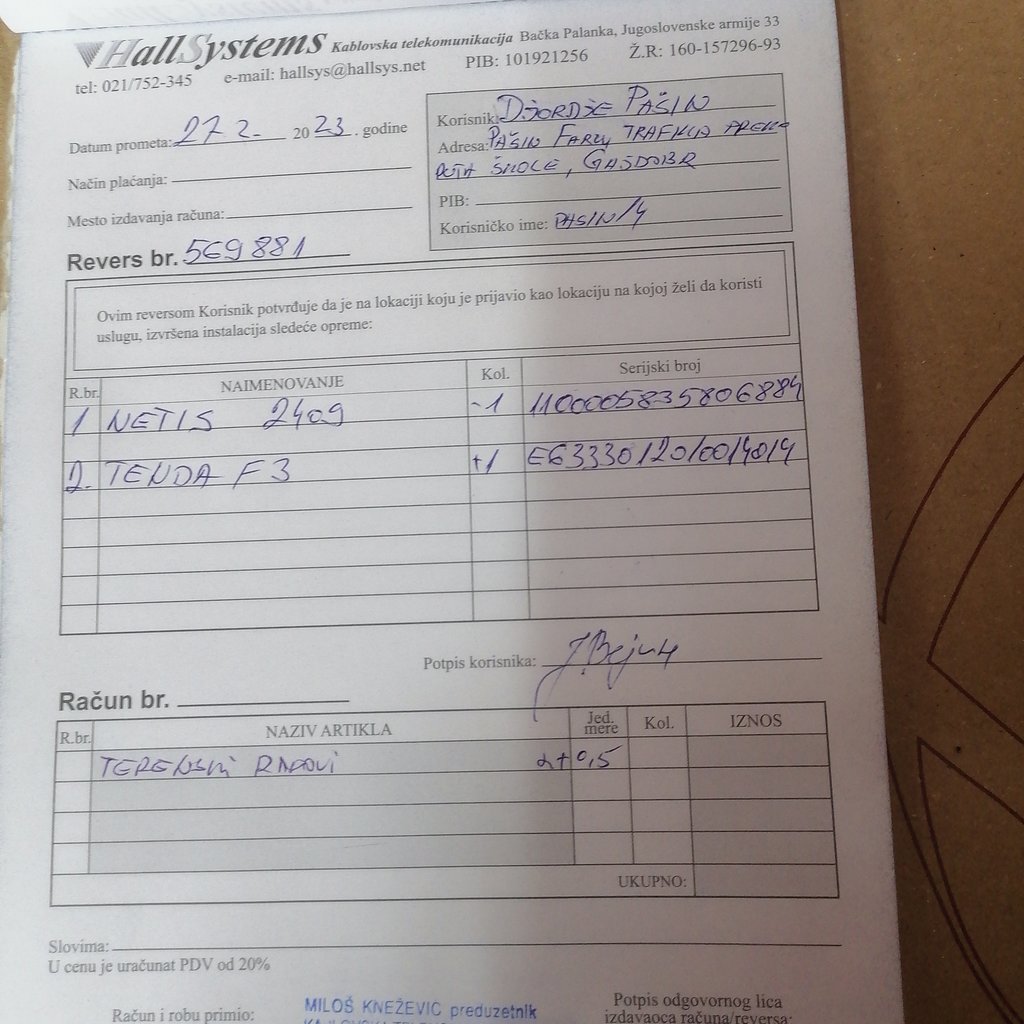 HallSystems Kablovska telekomunikacija Bačka Palanka, Jugoslovenske armije 33
tel: 021/752-345 e-mail: hallsys@hallsys.net PIB: 101921256 Ž.R: 160-157296-93
Datum prometa: 27 2. 2023. godine
Način plaćanja:
Mesto izdavanja računa:
Revers br. 569881
Korisnik: DŽORDŽE PAŠIN
Adresa: PAŠIN FARM TRAFIKA PREKO
PUTA ŠKOLE, GAJDOBRA
PIB:
Korisničko ime: PASIN/4
Ovim reversom Korisnik potvrđuje da je na lokaciji koju je prijavio kao lokaciju na kojoj želi da koristi
uslugu, izvršena instalacija sledeće opreme:
R.br. NAIMENOVANJE Kol. Serijski broj
1 NETIS 2409 -1 1100005835806884
2. TENDA F3 +1 E6333012010014014
Potpis korisnika:
Račun br.
R.br. NAZIV ARTIKLA Jed. mere Kol. IZNOS
TERENSKI RADOVI 2+0,5
UKUPNO:
Slovima:
U cenu je uračunat PDV od 20%
Račun i robu primio:
MILOŠ KNEŽEVIĆ preduzetnik
Potpis odgovornog lica
izdavaoca računa/reversa: